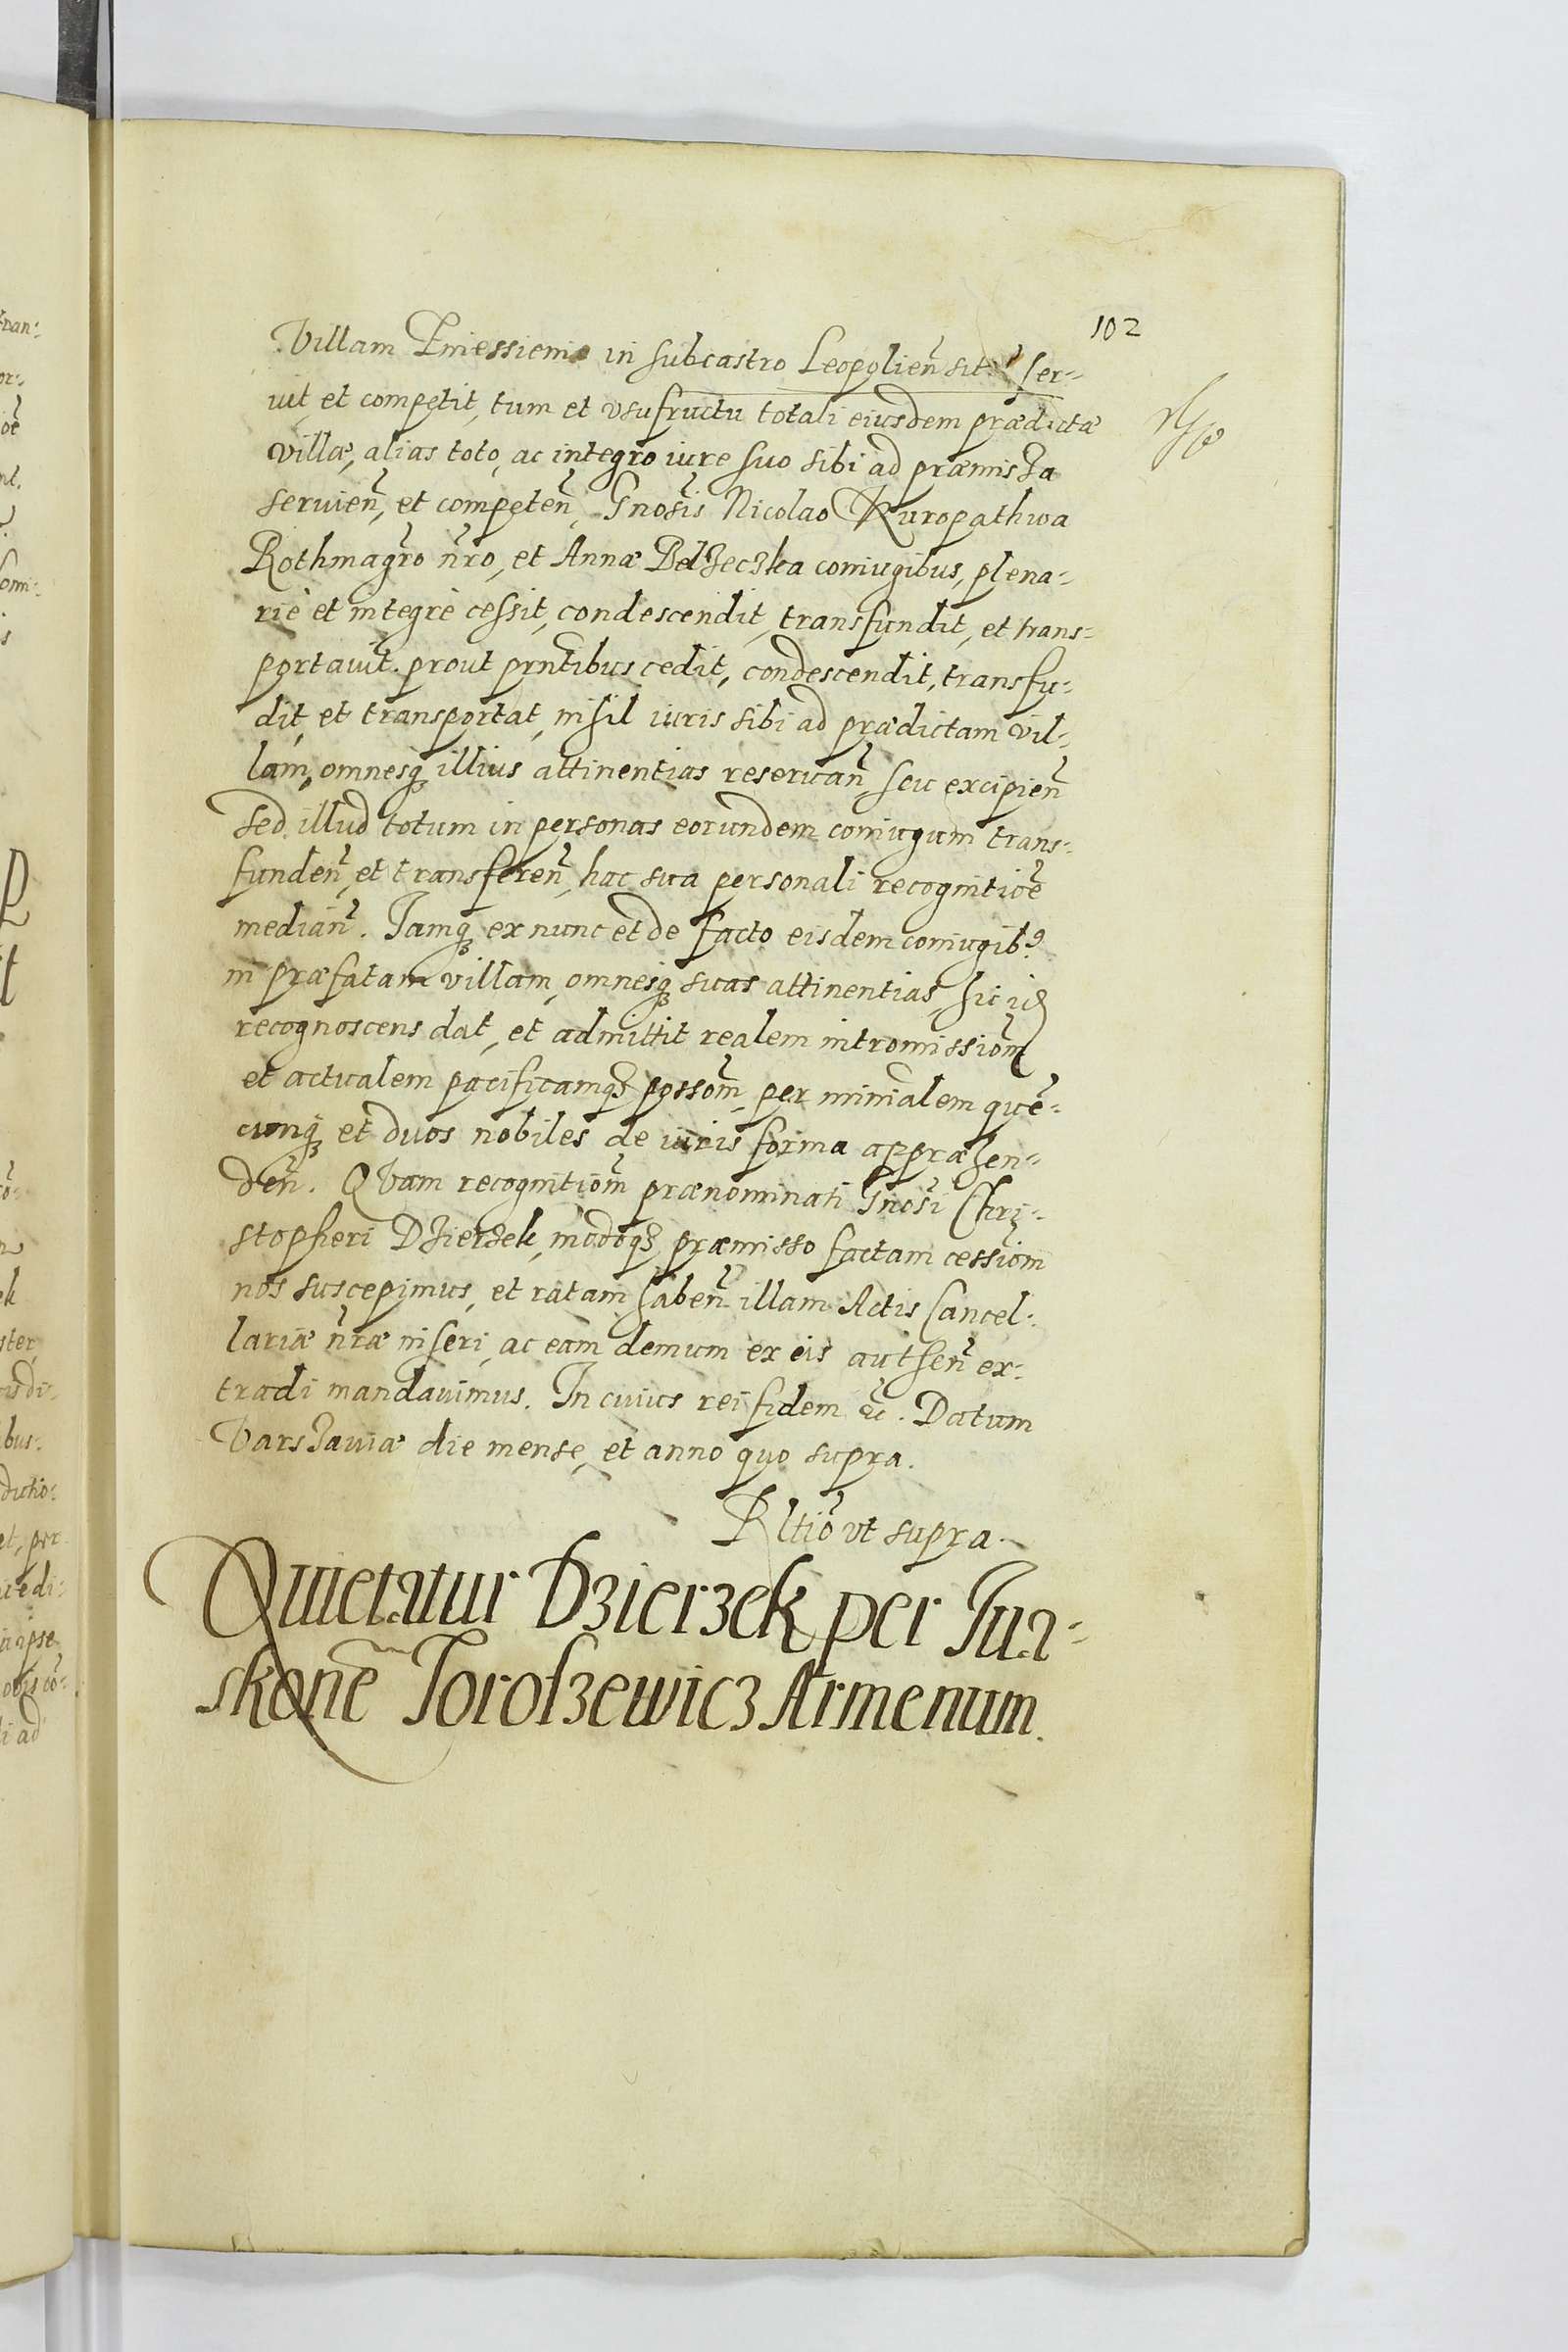 102
Villam Zniessienie in subcastro Leopolieñ sitã ser-
uit et competit, tum et vsufructu totali eiusdem prædictæ
villæ, alias toto, ac integro iure suo sibi ad præmissa
seruieñ, et competeñ, Gnosis Nicolao Kuropathwa
Rothmagr̃o ñro, et Annæ Belzeczka coniugibus, plena-
riè et integrè cessit, condescendit, transfundit, et trans-
portauit. prout prñtibus cedit, condescendit, transfu-
dit, et transportat, nihil iuris sibi ad prædictam vil-
lam, omnesq illius attinentias reseruañ, seu excipieñ
sed illud totum in personas eorundem coniugum trans-
fundeñ, et transfereñ, hac sua personali recognitiõe
mediañ. Iamq ex nunc et de facto eisdem coniugib9
in præfatam villam, omnesq suas attinentias, hic idẽ
recognoscens dat, et admittit realem intromissiom̃
et actualem pacificamq possom̃, per minĩalem quẽ-
cunq et duos nobiles de iuris forma appræhen-
deñ. Quam recognitiom̃ prænominati Gnosi Chri-
stopheri Dzierzek, modoq præmisso factam cessiom̃
nos suscepimus, et ratam habeñ illam Actis Cancel-
lariæ ñræ inseri, ac eam demum ex eis autheñ ex-
tradi mandauimus. In cuius rei fidem &c. Datum
Varszauiæ die mense, et anno quo supra.
Rltiõ vt supra.
Quietatur Dzierzek per Iua-
skonẽ Toroszewicz Armenum.